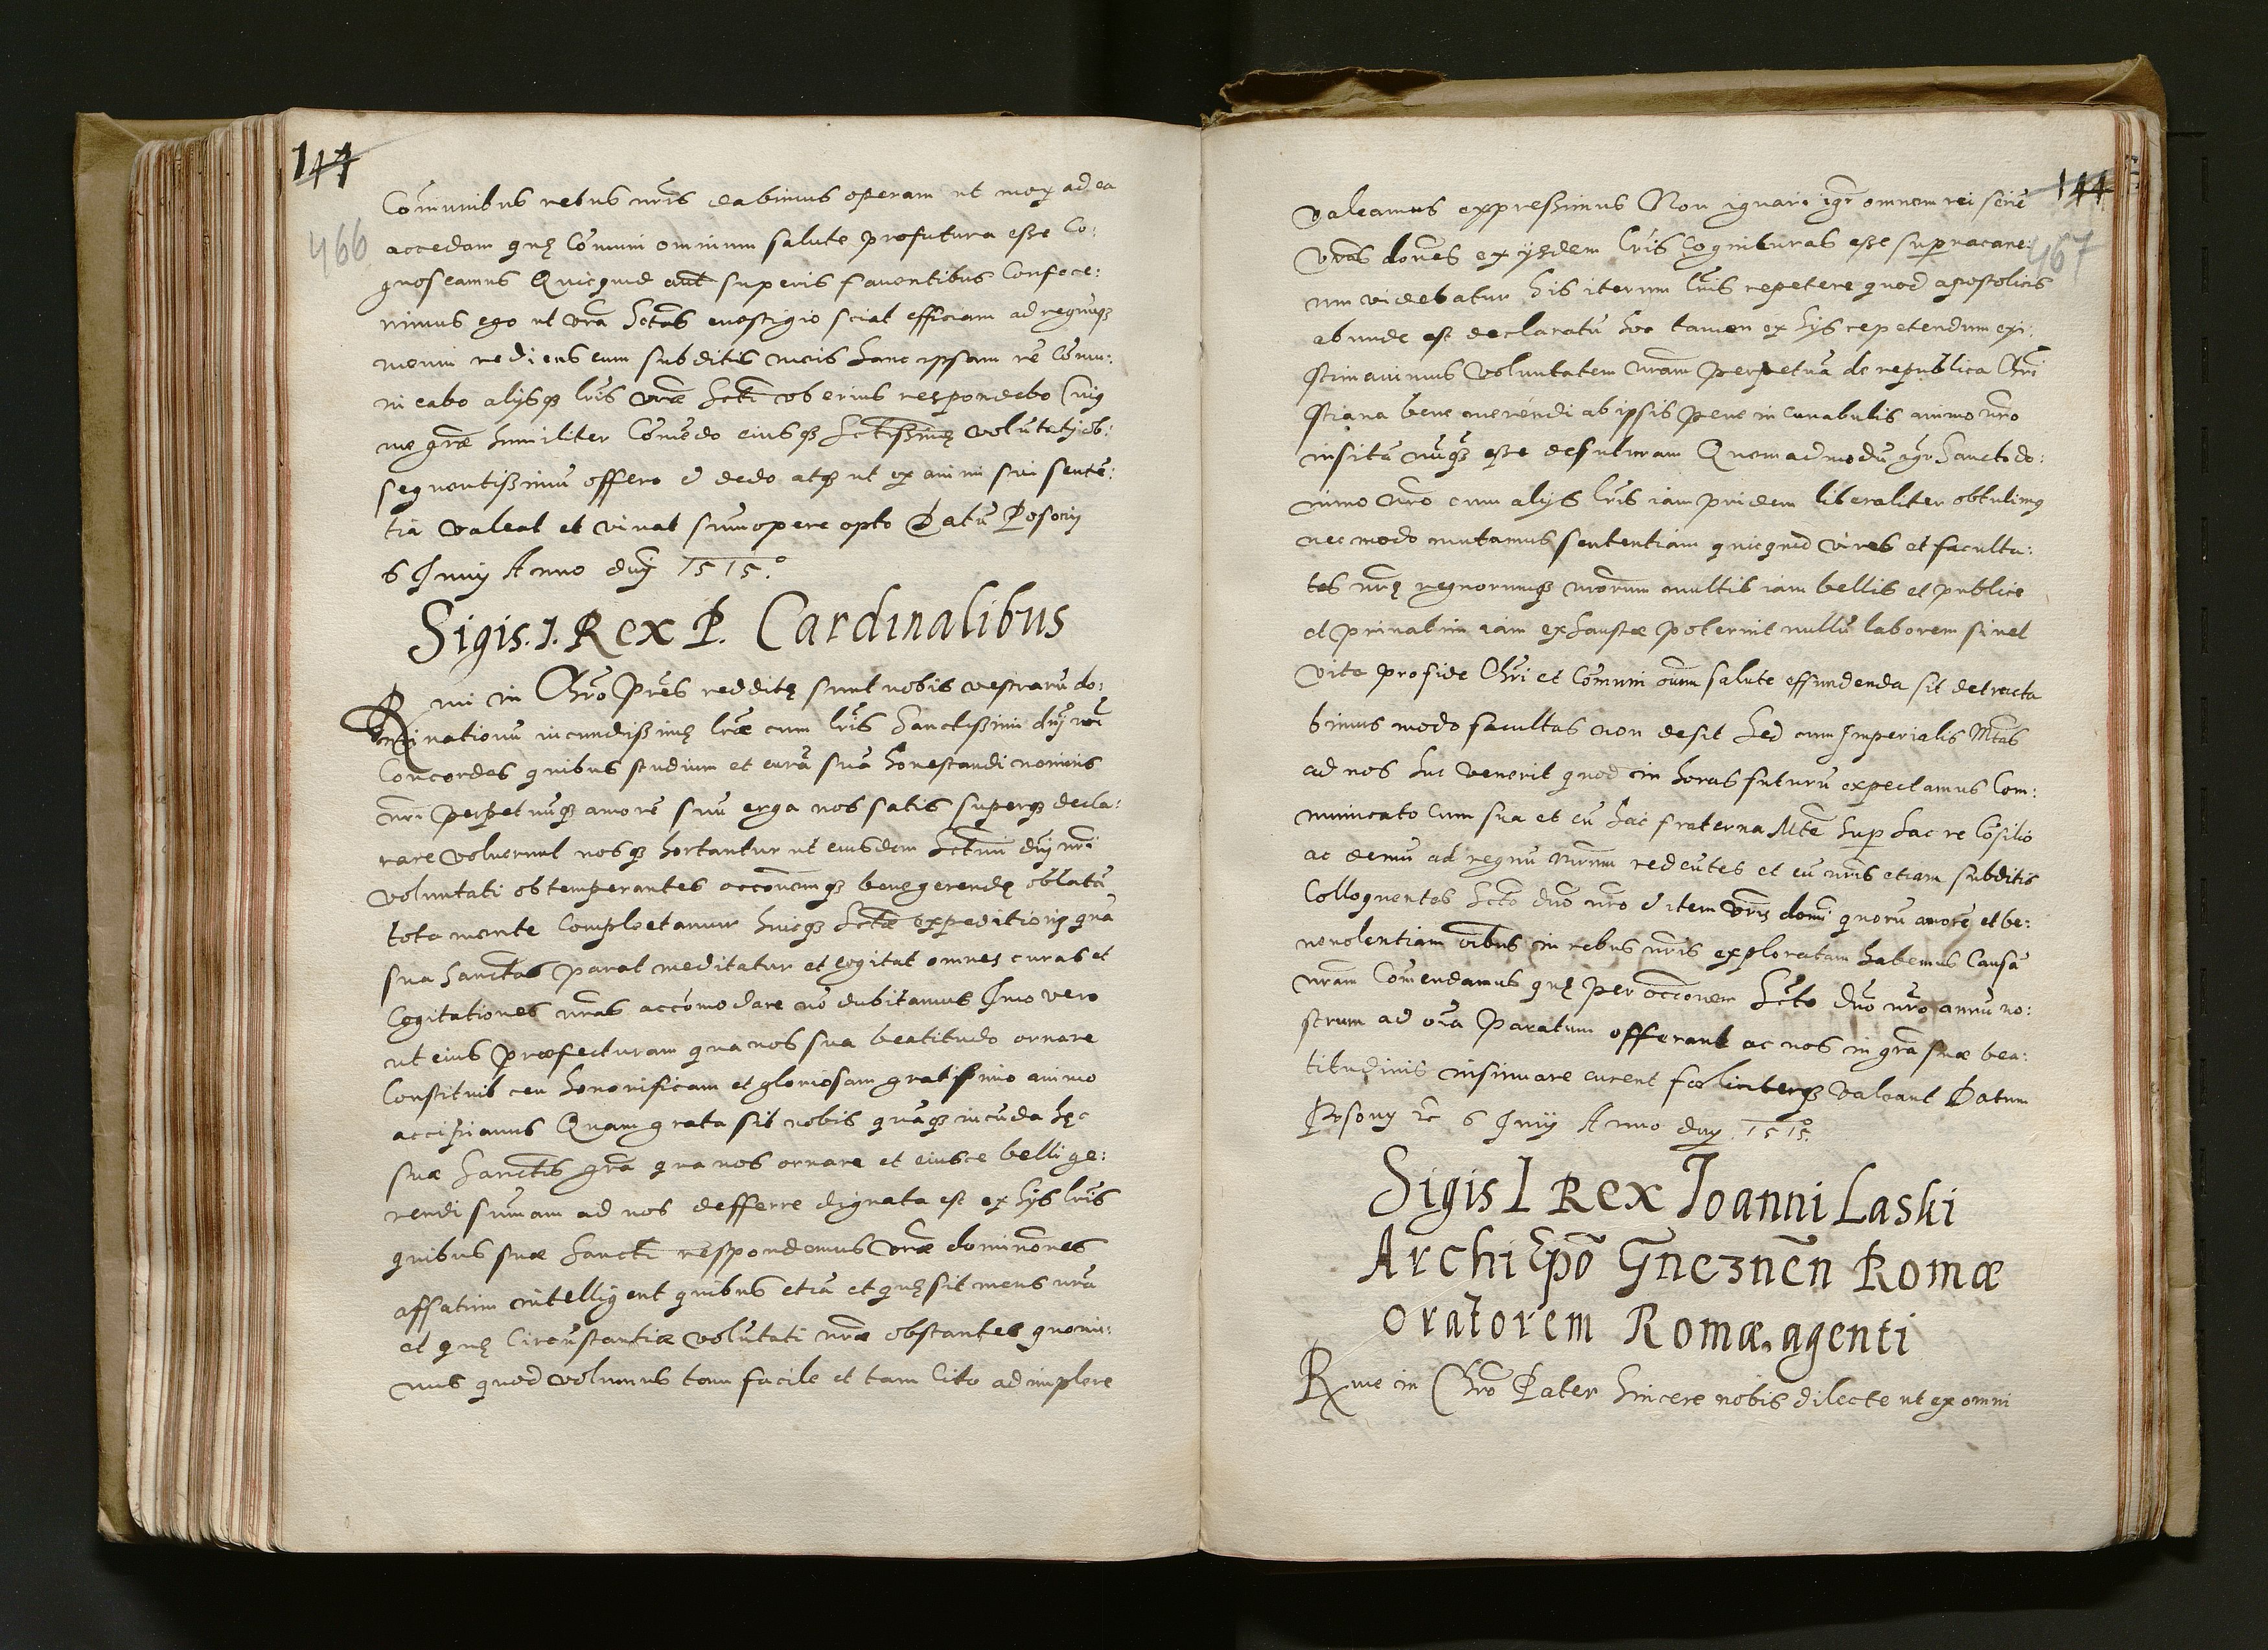 144
466
Comunibus rebus nr̃is dabimus operam ut mox ad ea
accedam quę Comuni omnium salute profutura esse Co:
gnoscamus Quicquid aut superis fauentibus Confece:
rimus ego ut vr̃a Sctãs euestigio sciat efficiam ad regnumq3
meum rediens cum subditis meis hanc ipsam rẽ Comu:
nicabo alijsq3 lr̃is vr̃æ Scti uberius respondebo Cuiꝯ
me grãe humiliter Comẽdo eiusq3 Sctissimę volũtatj ob:
sequentissimũ offero & dedo atq3 ut ex animi sui sentẽ:
tia valeat et viuat sumopere opto Datũ Posonij
6 Junij Anno dnj 1515.º
Sigis. I. Rex P. Cardinalibus
Rmi in Chr̃o Pr̃es redditę sunt nobis vestrarũ do:
minationũ iucundissimę lr̃æ cum lr̃is Sanctissimi dnj nr̃i
Concordes quibus studium et curã suã honestandi nominis
nr̃i perpetuũq3 amorẽ suũ erga nos satis superq3 decla:
rare voluerunt nosq3 hortantur ut eiusdem Sctmi dnj nr̃i
voluntati obtemperantes occõnemq3 bene gerendę oblatã
tota mente Complectamur huicq3 Sctæ expeditioni qua
sua Sanctas parat meditatur et cogitat omnes curas et
Cogitationes nr̃as accomodare nõ dubitamus Imo vero
ut eius præfecturam qua nos sua beatitudo ornare
Constituit ceu honorificam et gloriosam gratissimo animo
accipiamus Quam grata sit nobis quãq3 iucũda hęc
suæ Sanctis grã qua nos ornare et eiusce belli ge:
rendi sumam ad nos defferre dignata est ex hijs lr̃is
quibus suæ Sancti respondemus vr̃æ dominões
affatim intelligent quibus etiã et quę sit mens nr̃a
et quę Circũstantiæ volũtati nr̃æ obstantes quomi:
nus quod volumus tam facile et tam Cito adimplere
144
467
valeamus expressimus Non ignari igr̃ omnem rei seriẽ
vr̃as doñes ex ijsdem lr̃is Cognituras esse supruacane:
um videbatur his iterum lr̃is repetere quod apostolicis
abunde est declaratũ hoc tamen ex hijs repetendum exi:
stimauimus voluntatem nr̃am perpetuã de republica Chr̃i
stiana bene merendi ab ipsis pene in cunabulis animo nr̃o
insitã nũq3 esse defuturam Quemadmodũ igr̃ Sancto do:
mino nr̃o cum alijs lr̃is iam pridem liberaliter obtulimꝯ
nec modo mutamus sententiam quicquid vires et faculta:
tes nr̃ę regnorumq3 nr̃orum multis iam bellis et publice
et priuatim iam exhaustæ poterint nullũ laborem si vel
vita pro fide Chr̃i et Comuni oĩum salute effundenda sit detracta
bimus modo facultas non desit Sed cum Imperialis Mtas
ad nos huc venerit quod in horas futurũ expectamus Com:
municato Cum sua et cũ hac fraterna Mte sup hac re Cõsilio
ac demũ ad regnũ nr̃um redeũtes et cũ nr̃is etiam subditis
Colloquentes Scto dno nr̃o & item vr̃is domĩ quorũ amorẽ et be:
neuolentiam oĩbus in rebus nr̃is exploratam habemus Causã
nr̃am Comendamus quę per occõnem Scto dno nr̃o animũ no:
strum ad oĩa Paratum offerant ac nos in grã suæ bea:
titudinis insinuare curent fœliciterq3 valeant Datum
Posonij 6 Junij Anno dnj 1515º
Sigis I Rex Ioanni Laski
Archiep̃o Gnezneñ Romæ
oratorem Romæ. agenti
Rme in Chr̃o Pater Sincere nobis dilecte ut ex omni